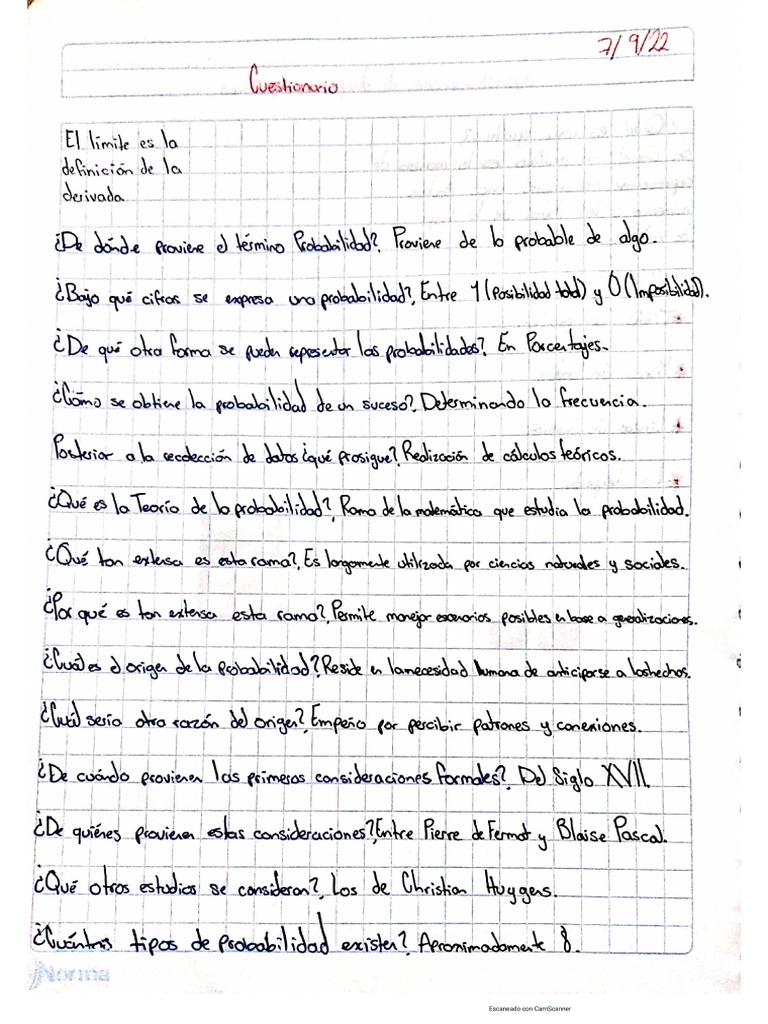 7/9/22
Cuestionario
El límite es la
definición de la
derivada.
¿De dónde proviene el término Probabilidad?, Proviene de lo probable de algo.
¿Bajo qué cifras se expresa una probabilidad?, Entre 1 (Posibilidad total) y 0 (Imposibilidad).
¿De qué otra forma se pueden representar las probabilidades?, En Porcentajes.
¿Cómo se obtiene la probabilidad de un suceso?, Determinando la frecuencia.
Posterior a la recolección de datos ¿qué prosigue?, Realización de cálculos teóricos.
¿Qué es la Teoría de la probabilidad?, Rama de la matemática que estudia la probabilidad.
¿Qué tan extensa es esta rama?, Es largamente utilizada por ciencias naturales y sociales.
¿Por qué es tan extensa esta rama?, Permite manejar escenarios posibles en base a generalizaciones.
¿Cuál es el origen de la probabilidad?, Reside en la necesidad humana de anticiparse a los hechos.
¿Cuál sería otra razón del origen?, Empeño por percibir patrones y conexiones.
¿De cuándo provienen las primeras consideraciones formales?, Del Siglo XVII.
¿De quiénes provienen estas consideraciones?, Entre Pierre de Fermat y Blaise Pascal.
¿Qué otros estudios se consideran?, Los de Christian Huygens.
¿Cuántos tipos de probabilidad existen?, Aproximadamente 8.
Norma
Escaneado con CamScanner